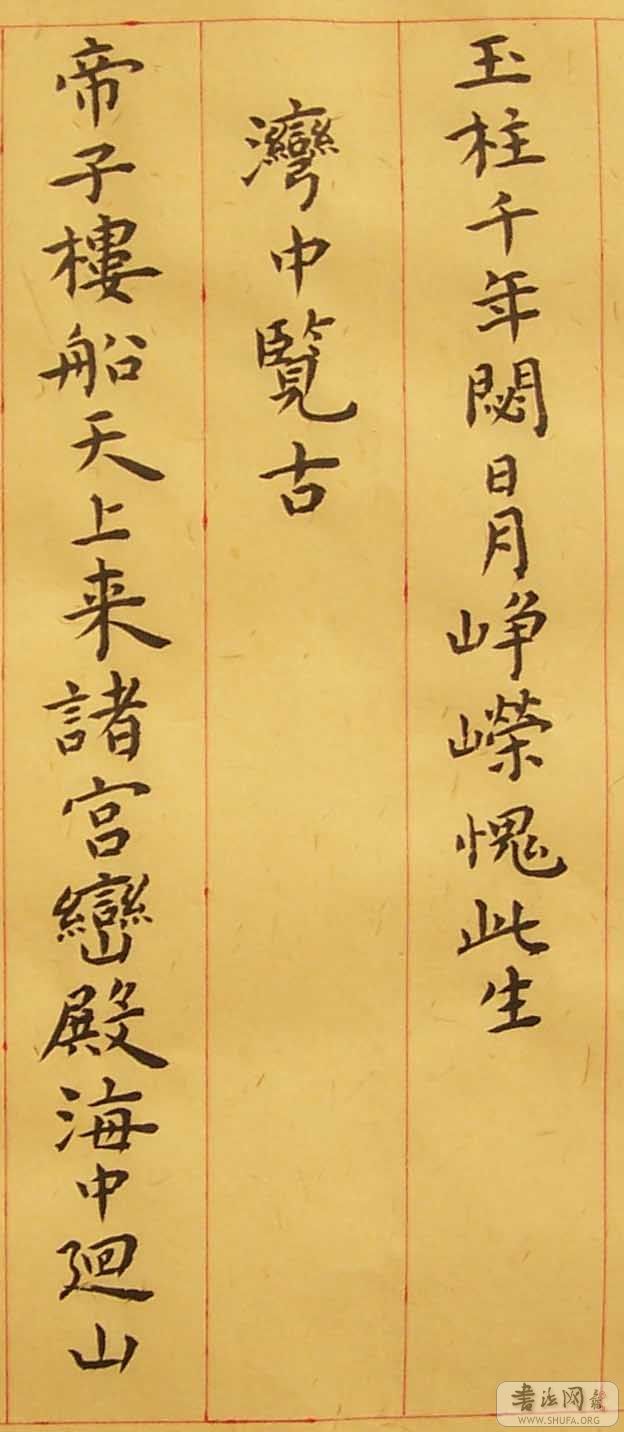 玉柱千年閟日月崢嶸愧此生
灣中覽古
帝子樓船天上来諸宫巒殿海中廻山
書法网
WWW.SHUFA.ORG